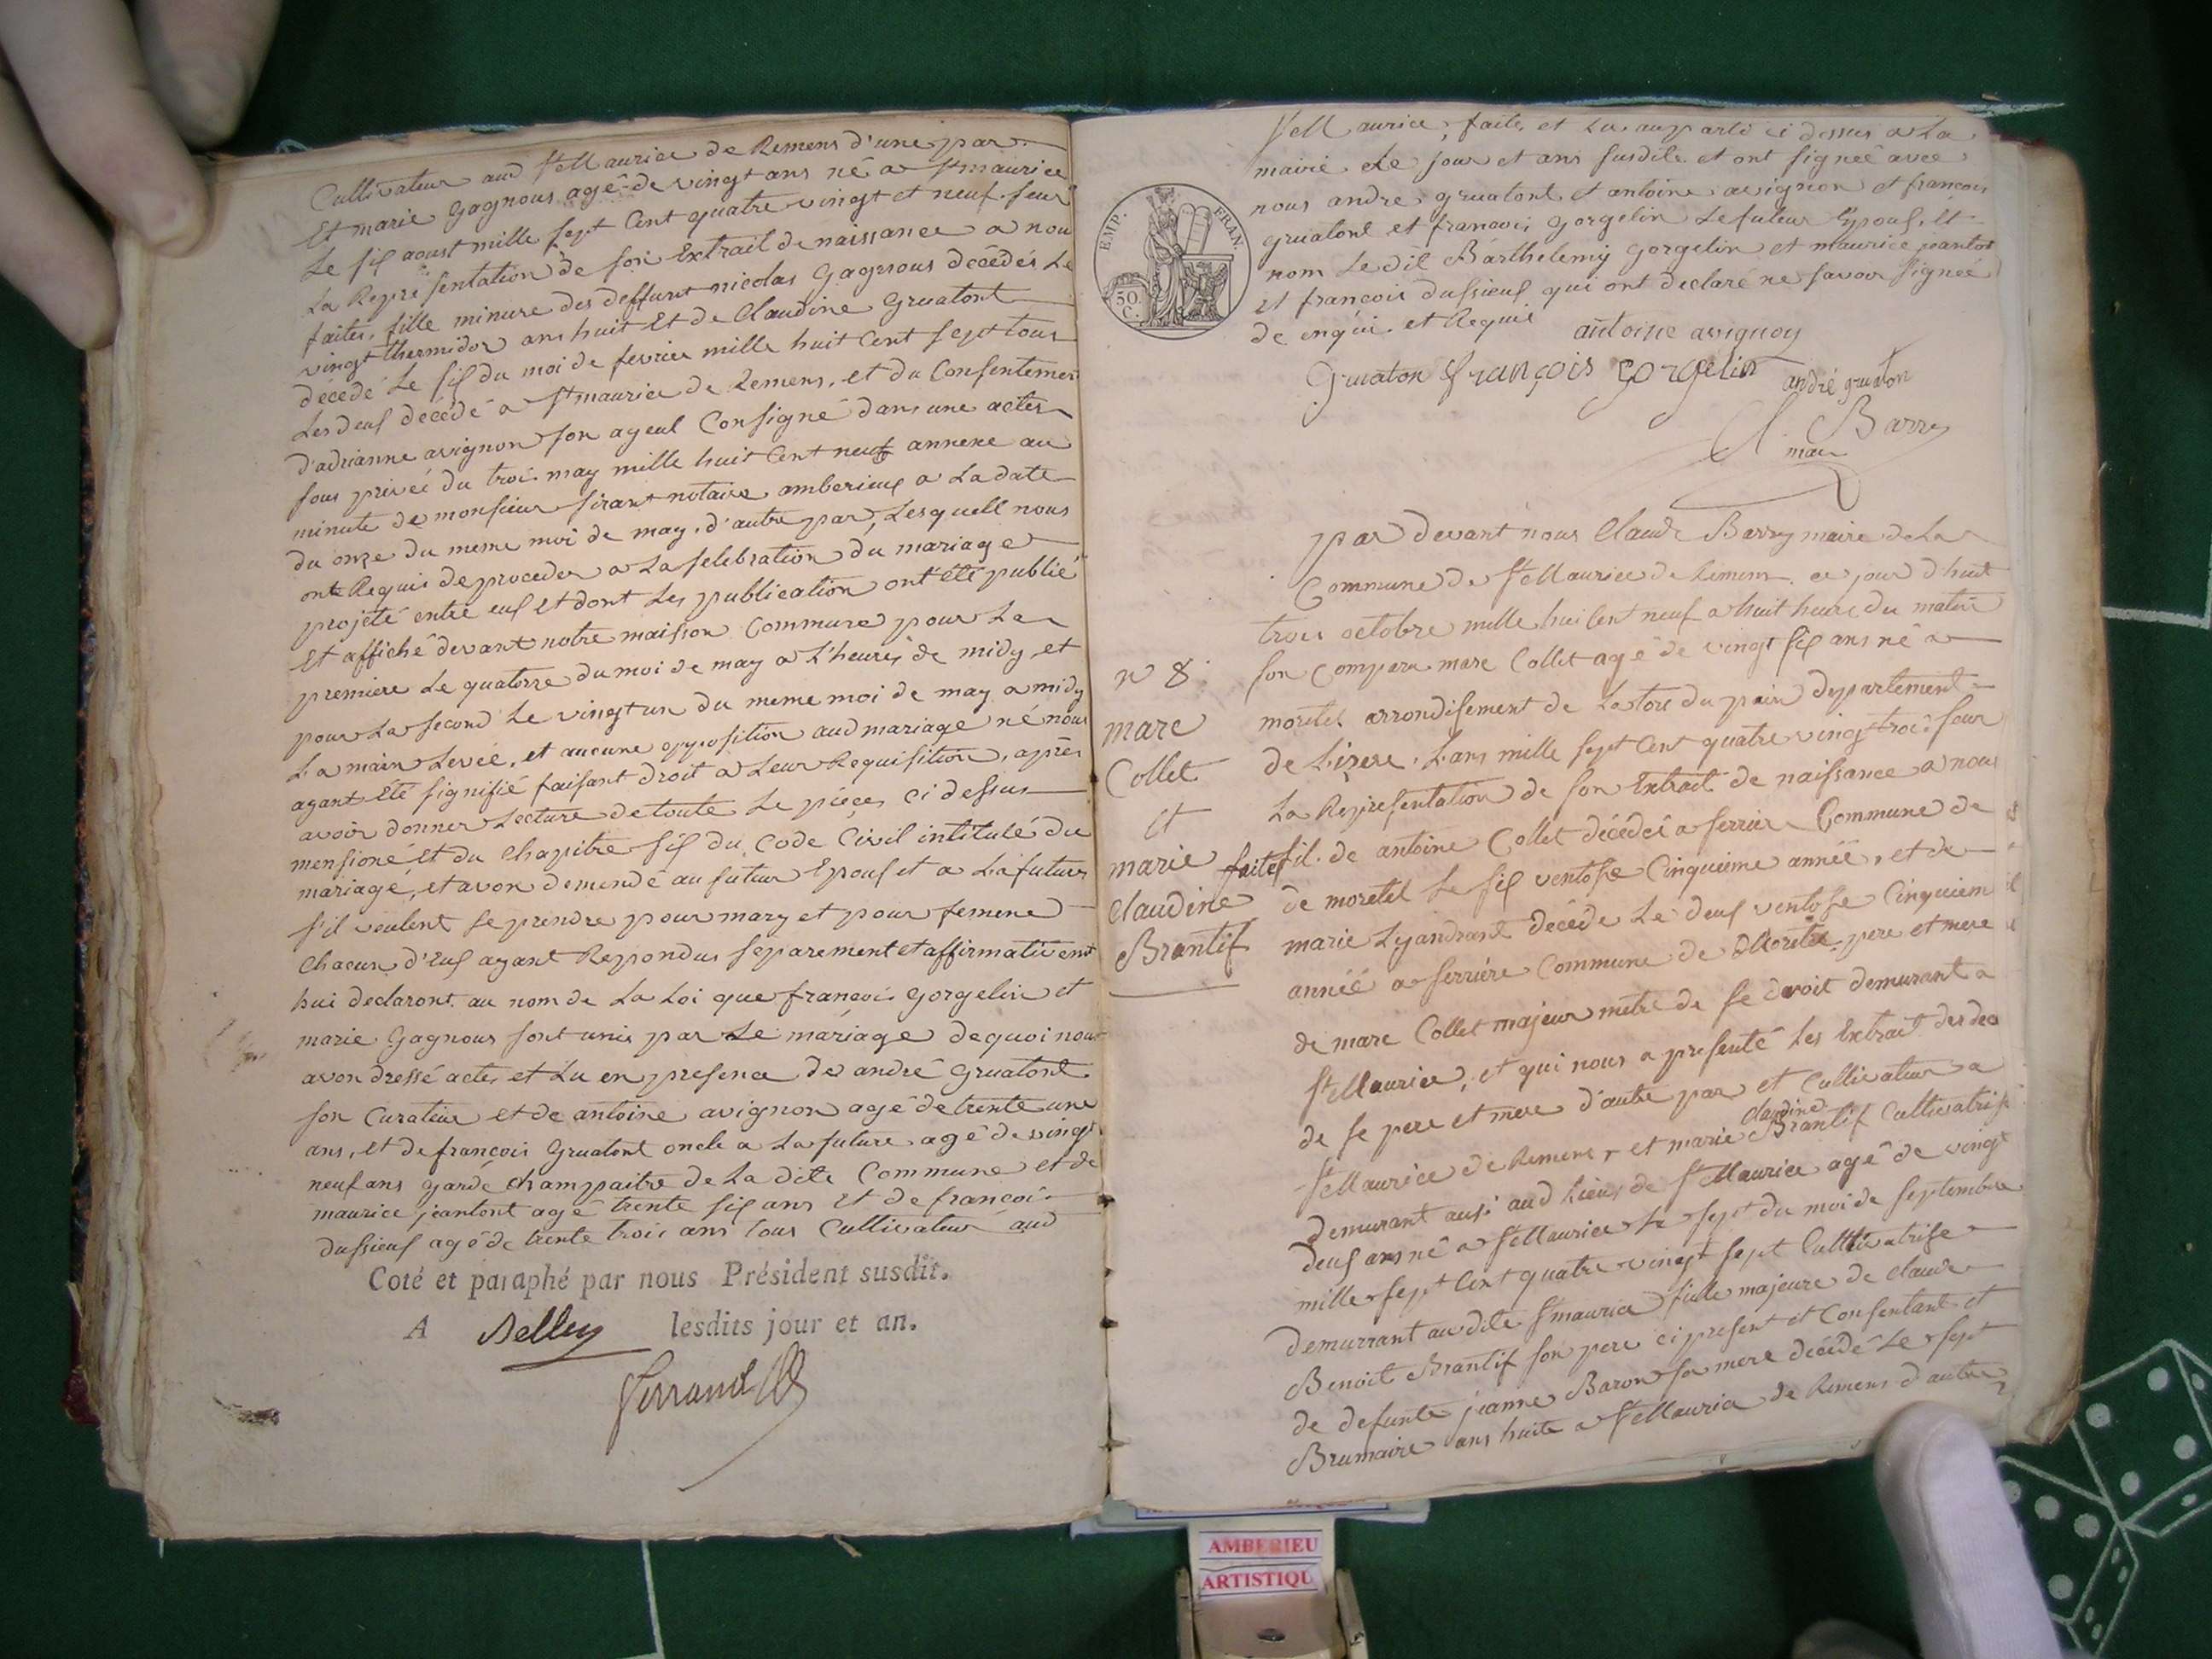 Cultivateur aud St Maurice de Remens d'une par
Et marie Gagnous agé de vingt ans né a St maurice
Le six aoust mille sept Cent quatre vingt et neuf. seur
La Representation de son Extrait de naissance a nou
faites, fille minure des deffunt nicolas Gagnous décédés Le
vingt thermidor ans huit Et de Claudine Gruatont
décédé Le six du moi de fevrier mille huit Cent sept tous
Les deux décédé a St maurice de Remens, et du Consentemen
d'adrianne avignon son ayeul Consigné dans une actes
sous privéé du trois may mille huit Cent neuf annexe au
minute de monsieur sirant notaire amberieux a La date
du onze du meme moi de may. d'autre par, Lesquell nous
ont Requis de proceder a La selebration du mariage
projeté entre eux Et dont Les publication ont été publié
Et affiché devant notre maisson Commune pour La
premiere Le quatorze du moi de may a L'heures de midy et
pour La second Le vingt un du meme moi de may a midy
La main Levée, et aucune opposition aud mariage né nous
ayant Eté signifié faisant droit a Leur Requisition, après
avoir donner Lecture de toute Le pièces ci dessus
mensioné Et du Chapitre six du Code Civil intitulé du
mariage, et avon demendé au futur Epoux et a La future
s'il veulent se prendre pour mary et pour femme
Chacun d'Eux ayant Repondus separement et affirmativemt
hui declaront au nom de La Loi que francois gorgelin et
marie Gagnous sont unis par Le mariage de quoi nous
avon dressé actes et Lu en presence de andré Gruatont
son Curateur et de antoine avignon agé de trente une
ans, et de françois Gruatont oncle a La future agé de vingt
neuf ans garde champaitre de La dite Commune et de
maurice jeantont agé trente six ans et de francois
dussieux agé de trente trois ans tous Cultivateur aud
Coté et paraphé par nous Président susdit.
A Belley lesdits jour et an.
Ferrand
St Maurice, faites et Lu au parti ci dessus a La
mairie Le jour et ans susdits et ont signéé avec
nous andre gruatont et antoine avignon et francois
gruatont et francois gorgelin Le futur Epoux, et
nom Le dit Barthelemy gorgelin et maurice jeantot
et francois dussieux qui ont declaré ne savoir signéé
de enqui et Requis
EMP. FRAN.
50 C.
antoine avignon
Gruaton François gorgelin
andré gruaton
Cl. Barry
maire
par devant nous Claude Barry maire de La
Commune de St Maurice de Remens. ce jour d'huit
trois octobre mille huit Cent neuf a huit heure du matin
son Comparu marc Collet agé de vingt six ans né a
moretel arrondisement de La tour du pain Departement
de L'izere. L'ans mille sept Cent quatre vingt trois seur
La Representation de son Extrait de naissance a nous
faites fil. de antoine Collet décédéé a serrier Commune de
de moretel Le six ventose Cinquieme année, et de
marie Lyandrant décédé Le deux ventose Cinquiem
année a serriere Commune de Moretel pere et mere
de marc Collet majeur metre de se droit demurant a
St Maurice, et qui nous a presenté Les Extrait des dea
de se pere et mere d'autre par et Cultivateur a
St Maurice de Remens, et marie claudine Brantif Cultivatrise
demurant ausi aud Lieux de St Maurice agé de vingt
deux ans né a St Maurice Le sept du moi de septembre
mille sept Cent quatre vingt sept Cultivatrise
demurrant au dite St maurice fille majeure de Claude
Benoit Brantif son pere ci present et Consentant et
de defunte jeanne Baron sa mere décédé Le sept
Brumaire ans huite a St Maurice de Remens d'autre
n° 8.
marc
Collet
et
marie
claudine
Brantif
AMBERIEU
ARTISTIQU